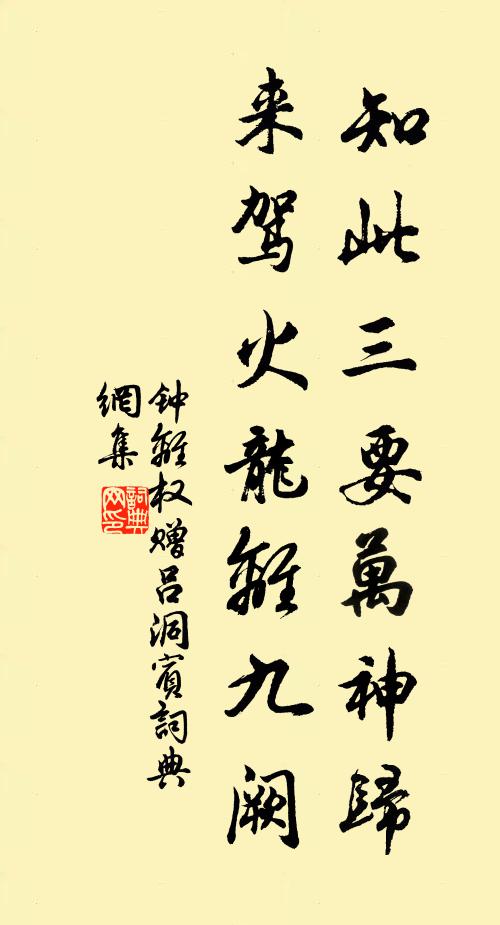 知此三要萬神歸
来駕火龍離九阙
钟離权赠吕洞賓詞典
網集
詞典
网印